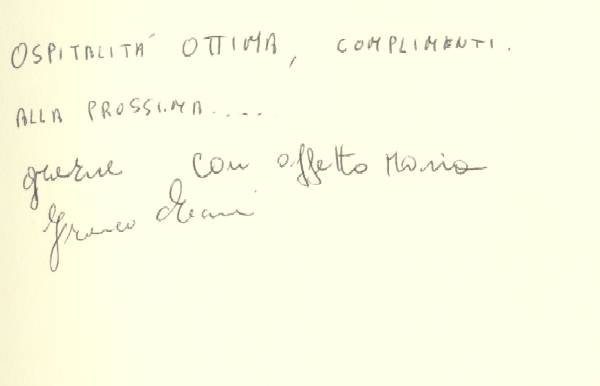 OSPITALITÁ OTTIMA, COMPLIMENTI.
ALLA PROSSIMA....
con affetto Maria
Franco